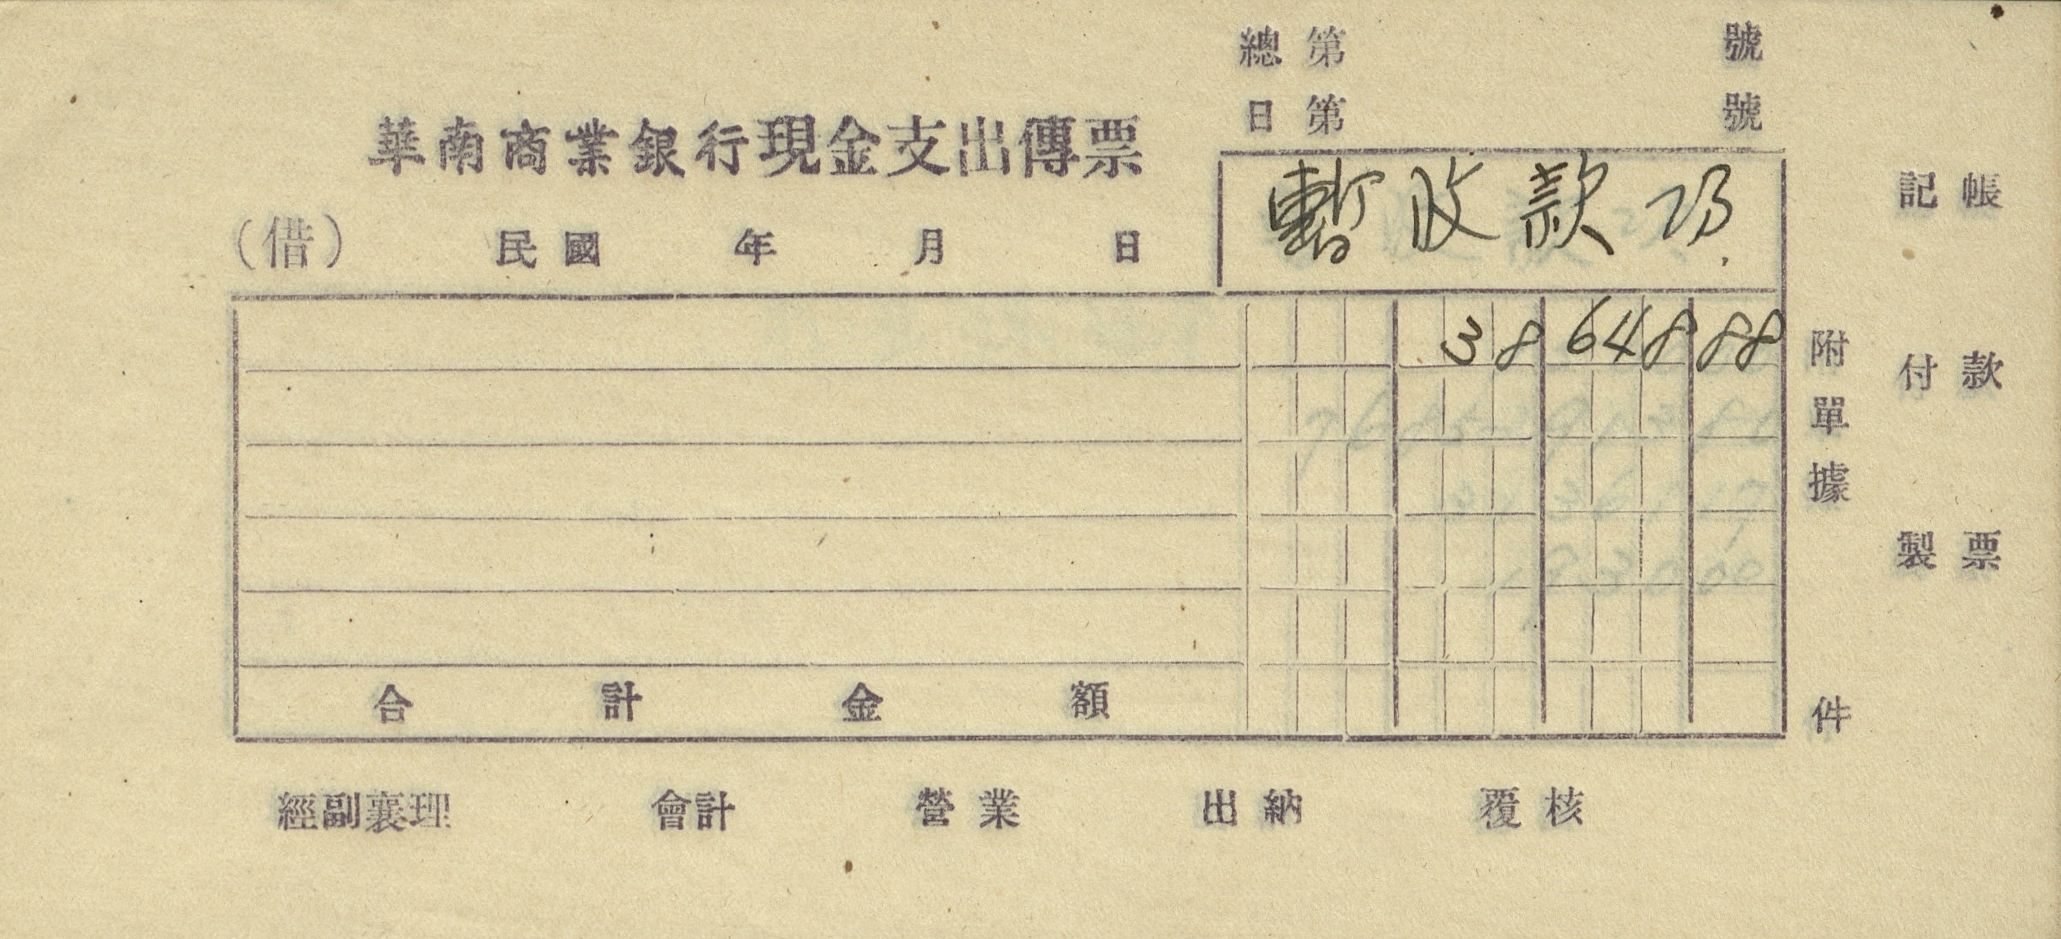 總第 號
日第 號
華南商業銀行現金支出傳票
(借) 民國 年 月 日
暫收款項
記帳
38 648 88
附單據 件
付款
製票
合計金額
經副襄理 會計 營業 出納 覆核